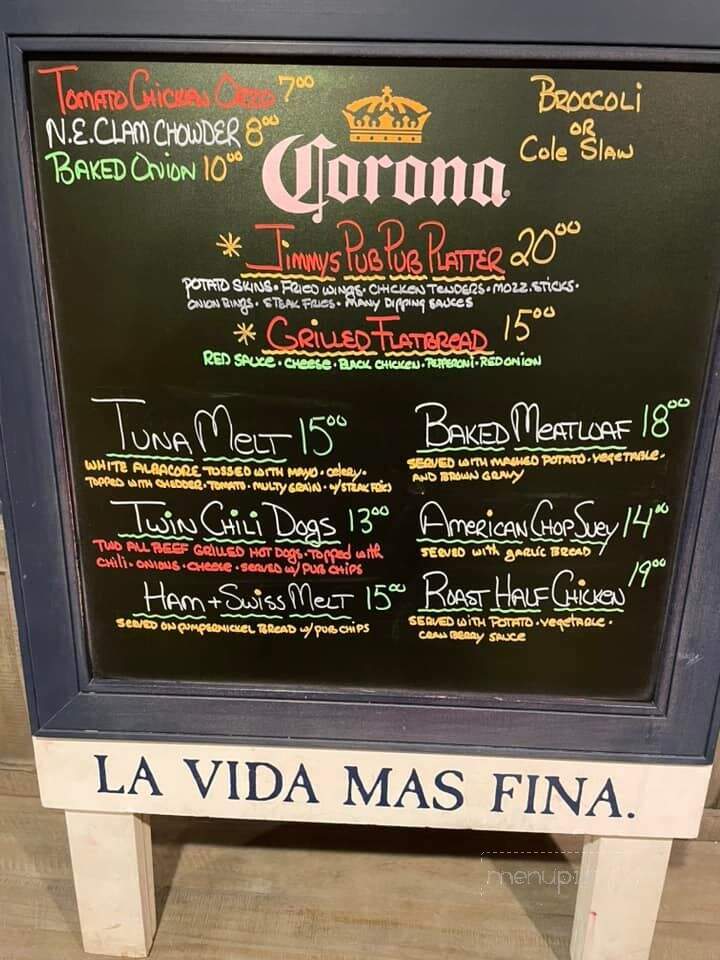 Tomato Chicken Orzo 7.00
N.E. Clam Chowder 8.00
Baked Onion 10.00
Broccoli
or
Cole Slaw
Corona
* Jimmys Pub Pub Platter 20.00
Potato Skins • Fried Wings • Chicken Tenders • Mozz. Sticks •
Onion Rings • Steak Fries • Many Dipping Sauces
* Grilled Flatbread 15.00
Red Sauce • Cheese • Black Chicken • Pepperoni • Red Onion
Tuna Melt 15.00
White Albacore Tossed with Mayo • Celery •
Topped with Chedder • Tomato • Multy Grain • w/ Steak Fries
Twin Chili Dogs 13.00
Two All Beef Grilled Hot Dogs • Topped with
Chili • Onions • Cheese • Served w/ Pub Chips
Ham + Swiss Melt 15.00
Served on Pumpernickel Bread w/ Pub Chips
Baked Meatloaf 18.00
Served with Mashed Potato • Vegetable •
and Brown Gravy
American Chop Suey 14.00
Served with Garlic Bread
Roast Half Chicken 19.00
Served with Potato • Vegetable •
Cranberry Sauce
LA VIDA MAS FINA.